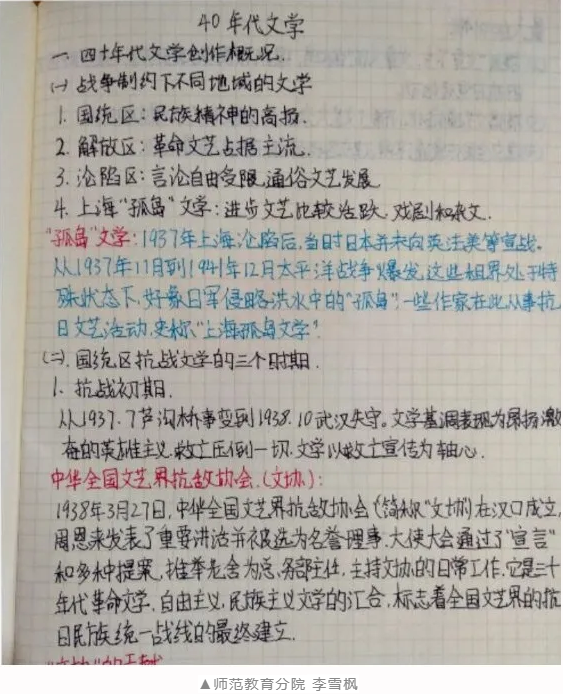 40年代文学
一 四十年代文学创作概况.
(一) 战争制约下不同地域的文学
1. 国统区：民族精神的高扬.
2. 解放区：革命文艺占据主流.
3. 沦陷区：言论自由受限,通俗文艺发展
4. 上海"孤岛"文学：进步文艺比较活跃,戏剧和杂文.
"孤岛"文学：1937年上海沦陷后,当时日本并未向英法美等宣战.
从1937年11月到1941年12月太平洋战争爆发,这些租界处于特
殊状态下,好象日军侵略洪水中的"孤岛",一些作家在此从事抗
日文艺活动,史称"上海孤岛文学".
(二). 国统区抗战文学的三个时期.
1. 抗战初期.
从1937.7芦沟桥事变到1938.10武汉失守。文学基调表现为昂扬激
奋的英雄主义.救亡压倒一切.文学以救亡宣传为轴心.
中华全国文艺界抗敌协会.(文协)：
1938年3月27日,中华全国文艺界抗敌协会(简称"文协")在汉口成立,
周恩来发表了重要讲话并被选为名誉理事.大使大会通过了"宣言"
和多种提案,推举老舍为总务部主任,主持文协的日常工作.它是三十
年代革命文学,自由主义,民族主义文学的汇合,标志着全国文艺界的抗
日民族统一战线的最终建立.
▲师范教育分院 李雪枫